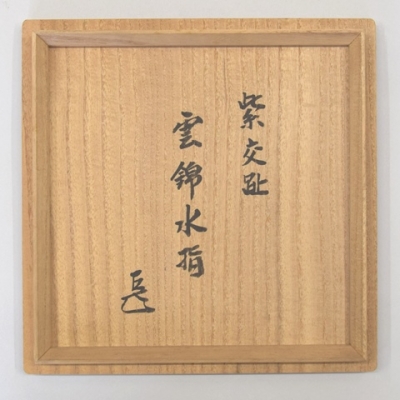 紫交趾
雲錦水指